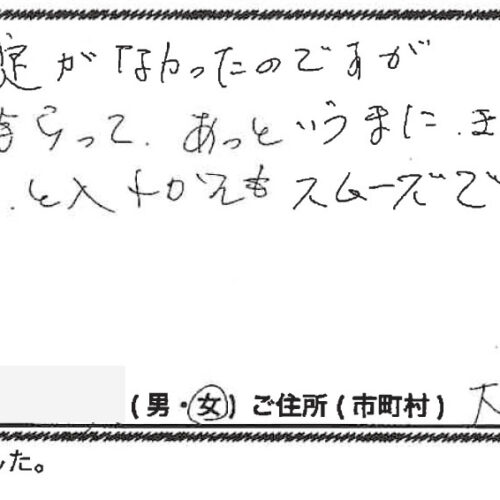 定がなかったのですが
もらって、あっというまに、き
、と入れかえもスムーズで
(男・女) ご住所(市町村) 大
した。